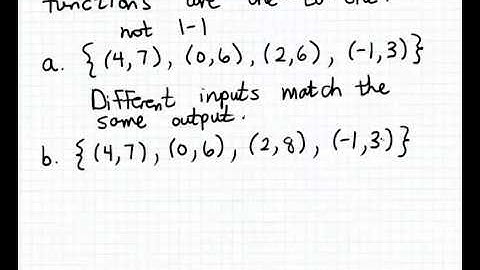 functions are one to one.
not 1-1
a. {(4,7), (0,6), (2,6), (-1,3)}
Different inputs match the
same output.
b. {(4,7), (0,6), (2,8), (-1,3)}